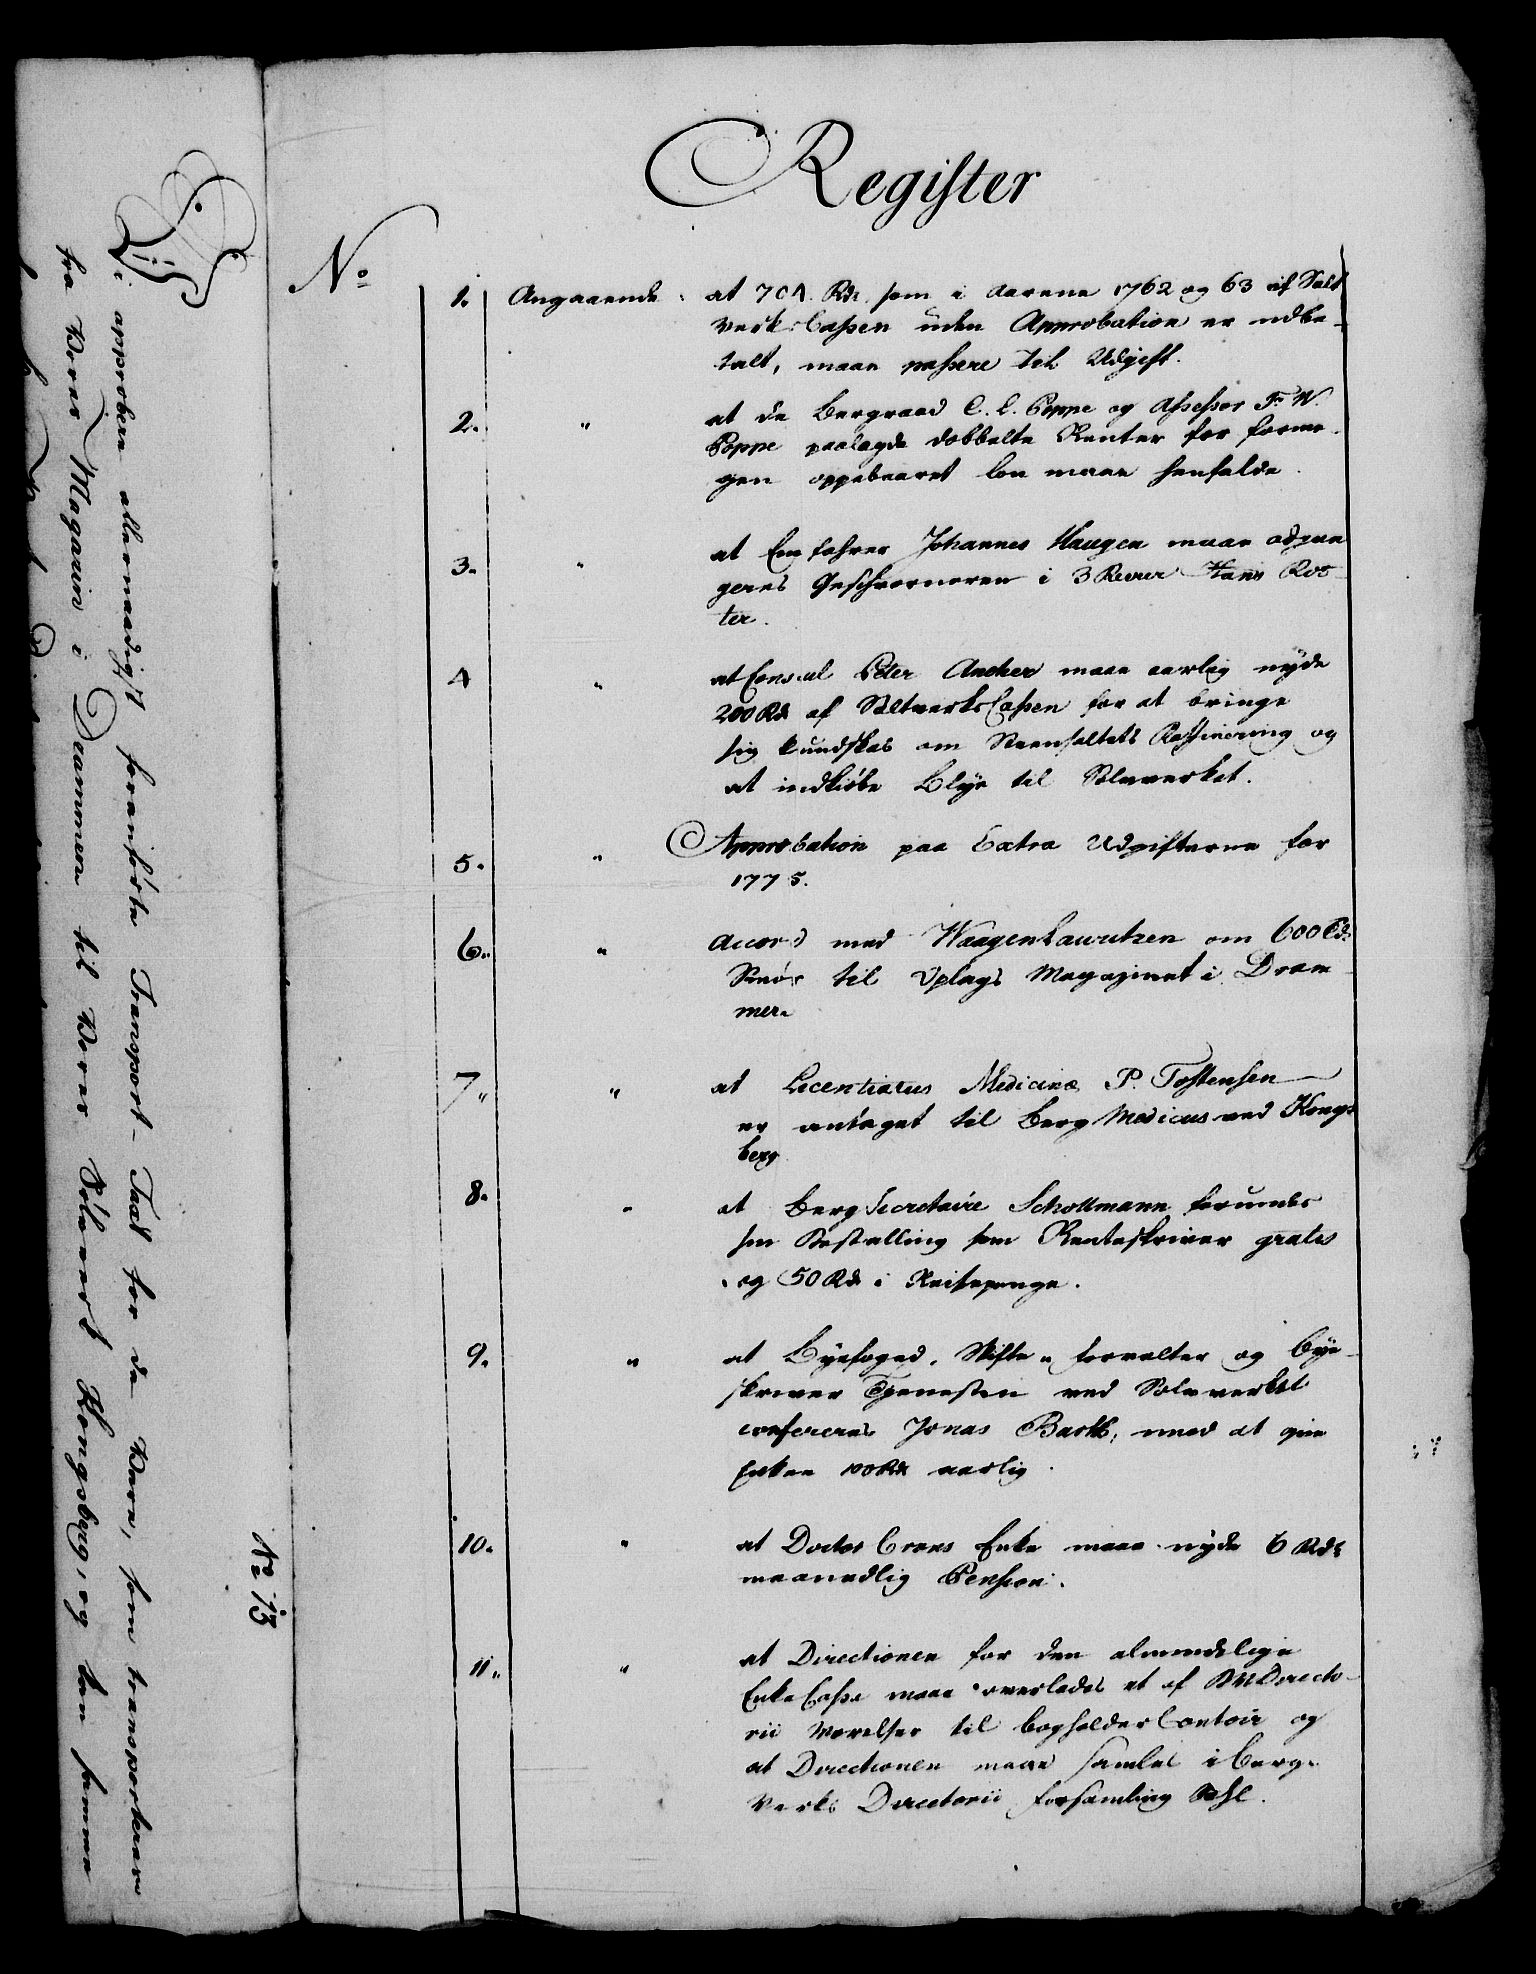 Register
No
1. Angaaende at 704 Rdr. som i Aarene 1762 og 63 af Salt
verks Cassen uden Approbation er udbe-
talt, maae passere til Udgift.
2. " at de Bergraad C. L. Poppe og Assessor F. W.
Poppe paalagde dobbelte Renter for forme-
gen oppebaaret Løn maae henfalde.
3. " at Einfahrer Johannes Haugen maae adjun
geres Geschworneren i 3 Revier Hans Roo-
ter.
4 " at Consul Peter Ancher maae aarlig nyde
200 Rd af Saltverks Cassen for at bringe
sig kundskab om Steensaltets Raffinering og
at indkiøbe Blye til Sølvverket.
5. " Approbation paa Extra Udgifterne for
1775.
6. " Accord med Waagen Lauritzen om 600
Smør til Oplags Magazinet i Dram-
men.
7 " at Licentiatus Medicinæ P. Tostensen
er antaget til Berg Medicus ved Kongs
berg
8. " at Berg Secretaire Schollmann forundes
sin Bestalling som Renteskriver gratis
og 50 Rd i Reisepenge.
9. " at Byefoged, Skifte-forvalter og Bye-
skriver Tjenesten ved Sølvverket
confereres Jonas Barth, imod at give
Enken 100 Rd aarlig.
10. " at Doctor Crons Enke maae nyde 6 Rdr
maanedlig Pension.
11. " at Directionen for den almindelige
Enke Casse maae overlades et af BVDirecto-
rii Værelser til bogholder Contoir og
at Directionen maae samles i Berg-
Verks Directorii forsamling Sahl.
No 13
Vi approbere allernaadigst foranførte Transport-Taxt for de Vare, som transporteres
fra Vores Magazin i Drammen til Vores Sølvverk Kongsberg, og kan samme